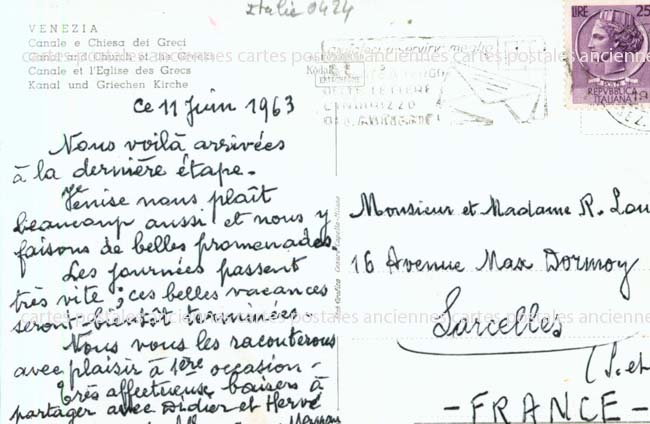 Italie 0424
VENEZIA
Canale e Chiesa dei Greci
Canal and Church of the Greeks
Canale et l'Eglise des Grecs
Kanal und Griechen Kirche
LIRE 25
REPVBBLICA
ITALIANA
DELLE LETTERE
ce 11 Juin 1963
Nous voilà arrivées
à la dernière étape.
Venise nous plaît
beaucoup aussi et nous y
faisons de belles promenades.
Les journées passent
très vite ; ces belles vacances
seront bientôt terminées
Nous vous les raconterons
avec plaisir à 1ère occasion -
Très affectueux baisers à
partager avec Didier et Hervé
Monsieur et Madame R. Lau
16 Avenue Max Dormoy
Sarcelles
(S. et
- FRANCE -
cartes postales anciennes cartes postales anciennes cartes postales anciennes
cartes postales anciennes cartes postales anciennes cartes postales anciennes